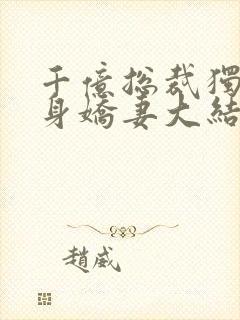 千億总裁獨
身嬌妻大結
趙威